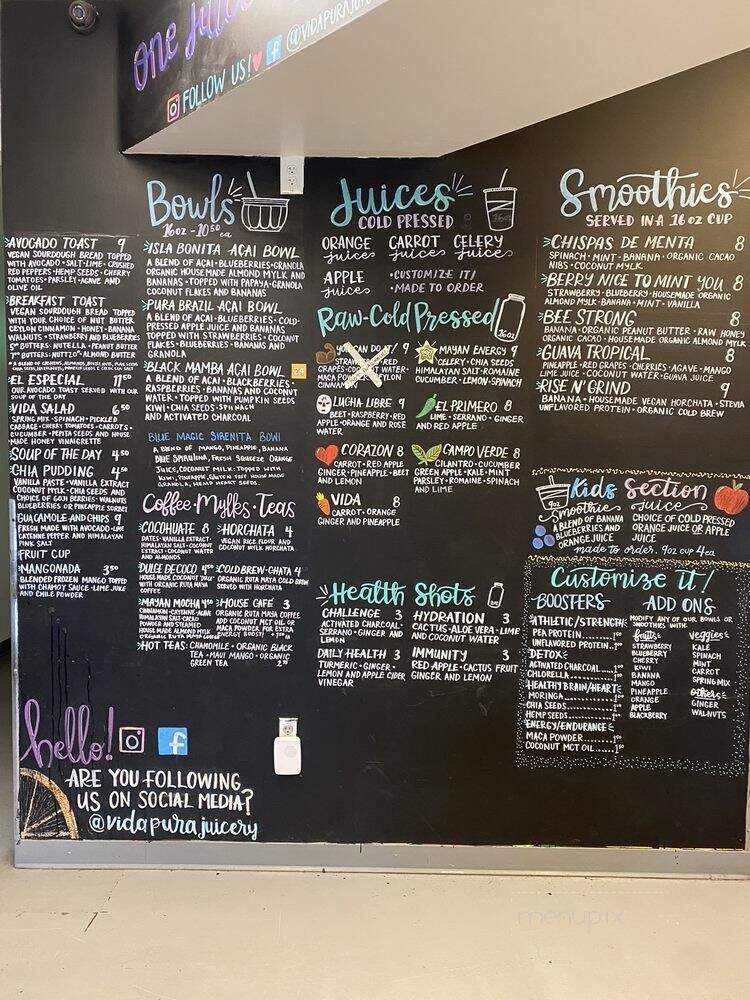 One Juice
FOLLOW US!
@VIDAPURAJUICE
Bowls
16oz - 10⁵⁰ ea
AVOCADO TOAST 9
VEGAN SOURDOUGH BREAD TOPPED
WITH AVOCADO • SALT • LIME • CRUSHED
RED PEPPERS • HEMP SEEDS • CHERRY
TOMATOES • PARSLEY • AGAVE AND
OLIVE OIL
BREAKFAST TOAST
VEGAN SOURDOUGH BREAD TOPPED
WITH YOUR CHOICE OF NUT BUTTER
CEYLON CINNAMON • HONEY • BANANA
WALNUTS • STRAWBERRY AND BLUEBERRIES
BUTTERS: NUTELLA • PEANUT BUTTER
BUTTERS: NUTTZO • ALMOND BUTTER
EL ESPECIAL 11⁵⁰
OUR AVOCADO TOAST SERVED WITH OUR
SOUP OF THE DAY
VIDA SALAD 6⁵⁰
SPRING MIX • SPINACH • PICKLED
CABBAGE • CHERRY TOMATOES • CARROTS •
CUCUMBER • PEPITA SEEDS AND HOUSE
MADE HONEY VINAIGRETTE
SOUP OF THE DAY 4⁵⁰
CHIA PUDDING 4⁵⁰
VANILLA PASTE • VANILLA EXTRACT
COCONUT MYLK • CHIA SEEDS AND
CHOICE OF GOJI BERRIES • WALNUTS
BLUEBERRIES OR PINEAPPLE SORBET
GUACAMOLE AND CHIPS 9
FRESH MADE WITH AVOCADO • LIME
CAYENNE PEPPER AND HIMALAYAN
PINK SALT
FRUIT CUP
MANGONADA 3⁵⁰
BLENDED FROZEN MANGO TOPPED
WITH CHAMOY SAUCE • LIME JUICE
AND CHILE POWDER
ISLA BONITA ACAI BOWL
A BLEND OF ACAI • BLUEBERRIES • GRANOLA
ORGANIC HOUSE MADE ALMOND MYLK AND
BANANAS • TOPPED WITH PAPAYA • GRANOLA
COCONUT FLAKES AND BANANAS
PURA BRAZIL ACAI BOWL
A BLEND OF ACAI • BLUEBERRIES • COLD-
PRESSED APPLE JUICE AND BANANAS
TOPPED WITH STRAWBERRIES • COCONUT
FLAKES • BLUEBERRIES • BANANAS AND
GRANOLA
BLACK MAMBA ACAI BOWL 24
A BLEND OF ACAI • BLACKBERRIES •
RASPBERRIES • BANANAS AND COCONUT
WATER • TOPPED WITH PUMPKIN SEEDS
KIWI • CHIA SEEDS • SPINACH
AND ACTIVATED CHARCOAL
BLUE MAGIC SIRENITA BOWL
A BLEND OF MANGO, PINEAPPLE, BANANA
BLUE SPIRULINA, FRESH SQUEEZE ORANGE
JUICE, COCONUT MILK • TOPPED WITH
KIWI, PINEAPPLE, GLUTEN FREE HOUSE MADE
GRANOLA, HEMP HEART SEEDS.
Coffee • Mylks • Teas
COCOHUATE 8
DATES • VANILLA EXTRACT •
HIMALAYAN SALT • COCONUT
EXTRACT • COCONUT WATER
AND ALMONDS
HORCHATA 4
VEGAN RICE FLOUR AND
COCONUT MYLK HORCHATA
DULCE DE COCO 4⁵⁰
HOUSE MADE COCONUT
SERVED WITH ORGANIC RUTA MAYA
COFFEE
COLDBREW-CHATA 4
ORGANIC RUTA MAYA COLD BREW
SERVED WITH HORCHATA
MAYAN MOCHA 4⁵⁰
CINNAMON • CAYENNE • AGAVE
HIMALAYAN SALT • CACAO
POWDER AND STEAMED
HOUSE MADE ALMOND MYLK
HOUSE CAFÉ 3
ORGANIC RUTA MAYA COFFEE
ADD COCONUT MCT OIL OR
MACA POWDER FOR EXTRA
ENERGY BOOST!
HOT TEAS: CHAMOMILE • ORGANIC BLACK
TEA • MAUI MANGO • ORGANIC
GREEN TEA
Juices
COLD PRESSED
16oz
ORANGE juice
CARROT juice
CELERY juice
APPLE juice
• CUSTOMIZE IT!
• MADE TO ORDER
Raw-Cold Pressed
16oz
CAN DO! 9
MAYAN ENERGY 9
CELERY • CHIA SEEDS
HIMALAYAN SALT • ROMAINE
CUCUMBER • LEMON • SPINACH
LUCHA LIBRE 9
BEET • RASPBERRY • RED
APPLE • ORANGE AND ROSE
WATER
EL PRIMERO 8
LIME • SERRANO • GINGER
AND RED APPLE
CORAZON 8
CARROT • RED APPLE
GINGER • PINEAPPLE • BEET
AND LEMON
CAMPO VERDE 8
CILANTRO • CUCUMBER
GREEN APPLE • KALE • MINT
PARSLEY • ROMAINE • SPINACH
AND LIME
VIDA 8
CARROT • ORANGE
GINGER AND PINEAPPLE
Health Shots
CHALLENGE 3
ACTIVATED CHARCOAL •
SERRANO • GINGER AND
LEMON
HYDRATION 3
CACTUS • ALOE VERA • LIME
AND COCONUT WATER
DAILY HEALTH 3
TURMERIC • GINGER •
LEMON AND APPLE CIDER
VINEGAR
IMMUNITY 3
RED APPLE • CACTUS FRUIT
GINGER AND LEMON
Smoothies
SERVED IN A 16 oz CUP
CHISPAS DE MENTA 8
SPINACH • MINT • BANANA • ORGANIC CACAO
NIBS • COCONUT MYLK
BERRY NICE TO MINT YOU 8
STRAWBERRY • BLUEBERRY • HOUSEMADE ORGANIC
ALMOND MYLK • BANANA • MINT • VANILLA
BEE STRONG 8
BANANA • ORGANIC PEANUT BUTTER • RAW HONEY
ORGANIC CACAO • HOUSEMADE ORGANIC ALMOND MYLK
GUAVA TROPICAL 8
PINEAPPLE • RED GRAPES • CHERRIES • AGAVE • MANGO
LIME JUICE • COCONUT WATER • GUAVA JUICE
RISE N' GRIND 9
BANANA • HOUSEMADE VEGAN HORCHATA • STEVIA
UNFLAVORED PROTEIN • ORGANIC COLD BREW
Kids Section
9oz
Smoothie
A BLEND OF BANANA
BLUEBERRIES AND
ORANGE JUICE
Juice
CHOICE OF COLD PRESSED
ORANGE JUICE OR APPLE
JUICE
made to order. 9oz cup 4ea
Customize it!
BOOSTERS
ATHLETIC/STRENGTH
PEA PROTEIN
UNFLAVORED PROTEIN
DETOX
ACTIVATED CHARCOAL
CHLORELLA
HEALTHY BRAIN/HEART
MORINGA
CHIA SEEDS
HEMP SEEDS
ENERGY/ENDURANCE
MACA POWDER
COCONUT MCT OIL
ADD ONS
MODIFY ANY OF OUR BOWLS OR
SMOOTHIES WITH
fruits
STRAWBERRY
BLUEBERRY
CHERRY
KIWI
BANANA
MANGO
PINEAPPLE
ORANGE
APPLE
BLACKBERRY
veggies
KALE
SPINACH
MINT
CARROT
SPRING MIX
others
GINGER
WALNUTS
hello!
ARE YOU FOLLOWING
US ON SOCIAL MEDIA?
@vidapurajuicery
menupix